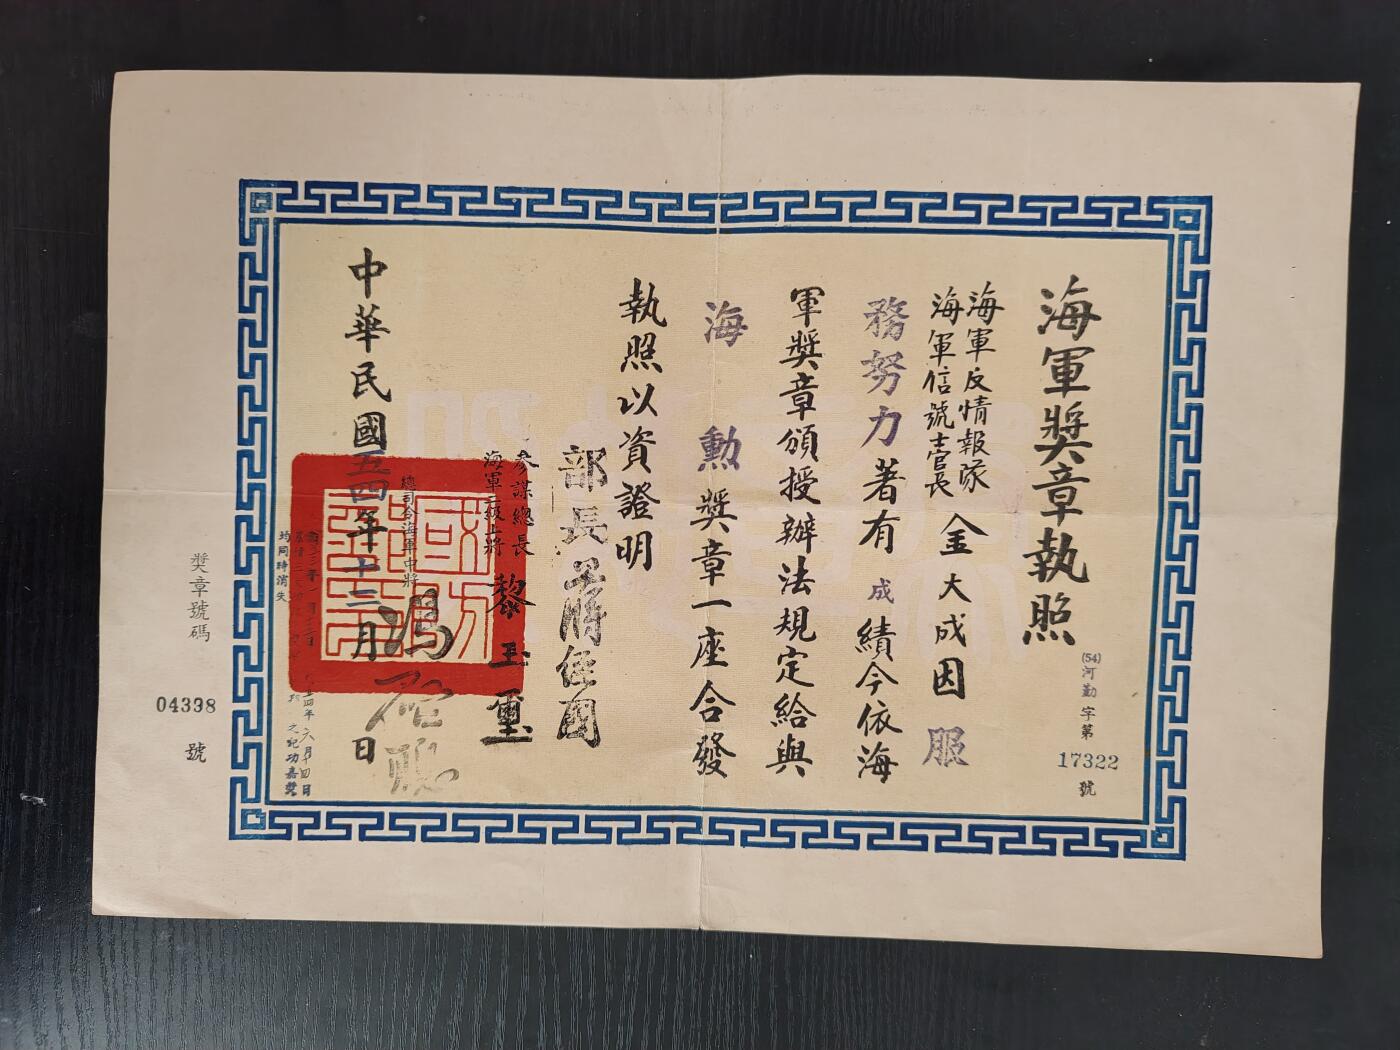 海軍獎章執照
(54)河勤字第17322號
海軍反情報隊
海軍信號士官長
金大成因服
務努力著有成績今依海
軍獎章頒授辦法規定給與
海勳獎章一座合發
執照以資證明
部長蔣經國
參謀總長
海軍二級上將
黎玉璽
總司令海軍中將
馮啟聰
中華民國五四年十二月日
均同時消失
之記功嘉獎
獎章號碼
04398
號